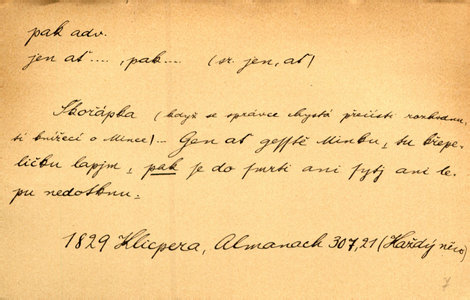 pak adv.
jen ať ...., pak.... (sr. jen, ať)
Skořápka (když se správce chystá přečísti rozhodnu-
tí knížecí o Mince) ... Gen ať gesstě Minku, tu křepe-
ličku lapjm, pak je do smrti ani sytj ani le-
pu nedotknu.
1829 Klicpera, Almanach 307,21 (Každý něco)
7